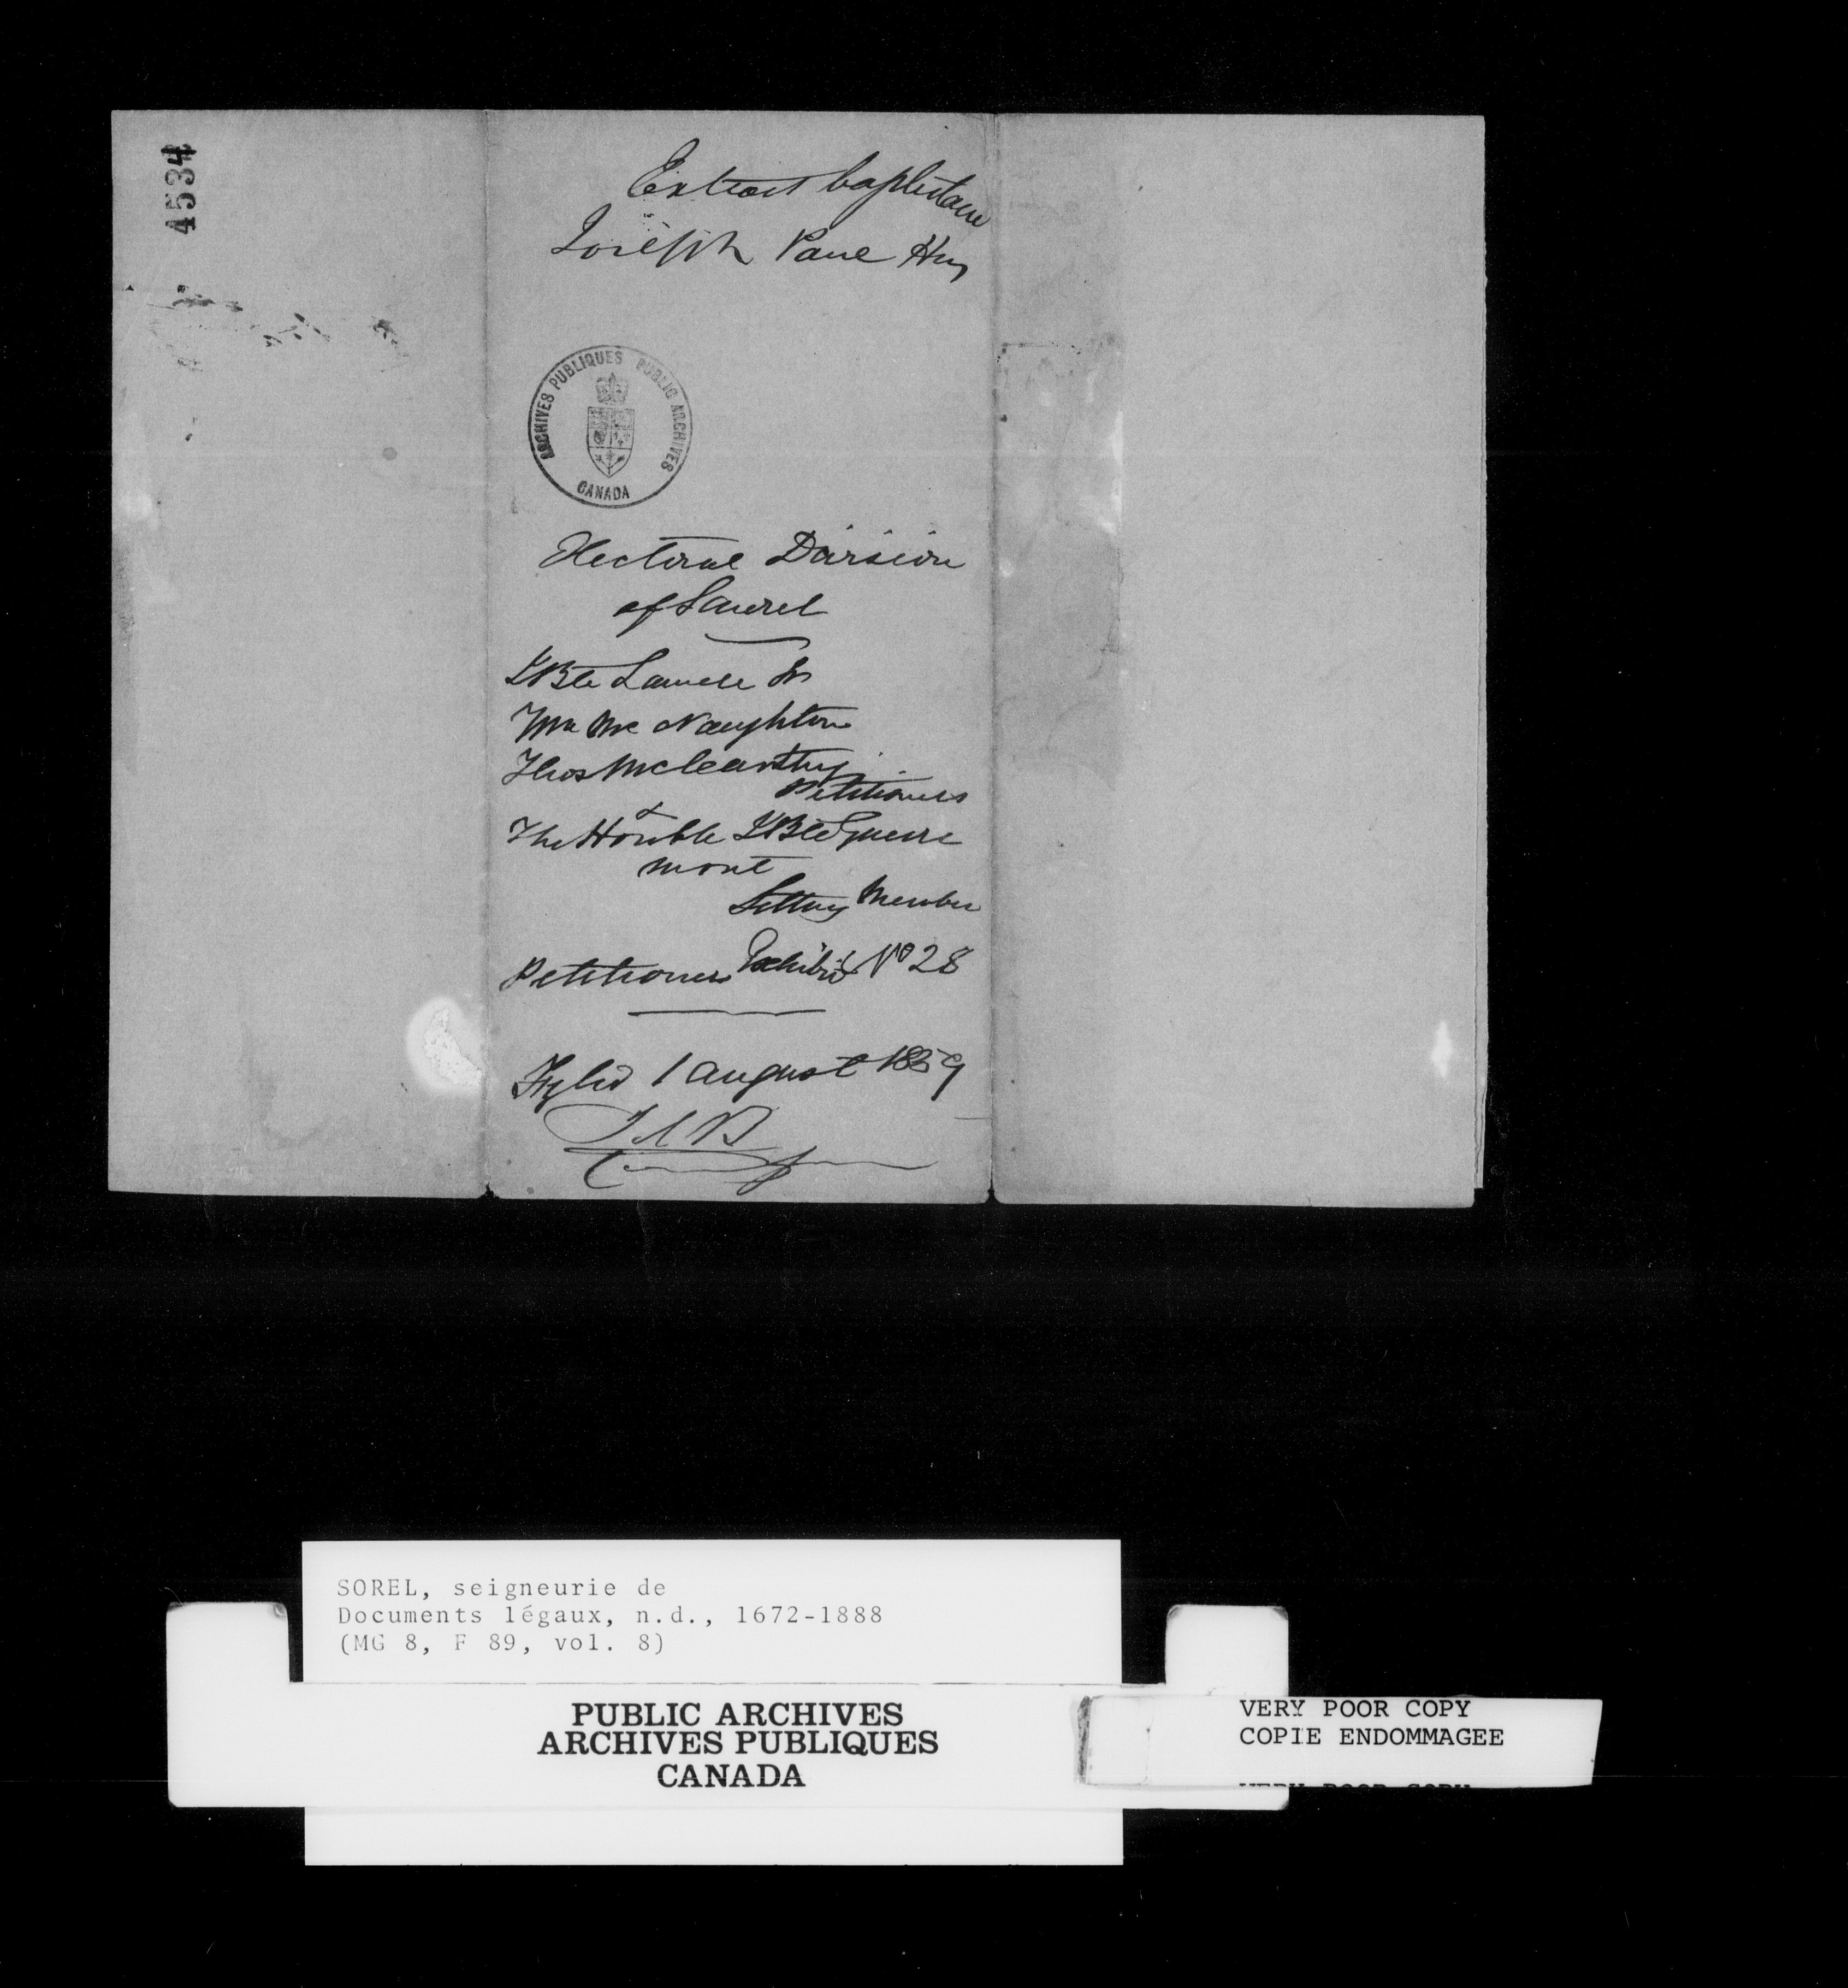 4534
Extrait baptistaire
Joseph Paul Hus
ARCHIVES PUBLIQUES PUBLIC ARCHIVES
CANADA
Electoral Division
of Saurel
JBte Lamere
Mc Naughton
Thos McCarthy
Petitioners
&
The Honble JBte Guevre
mont
Sitting Member
Petitioners Exhibit No 28
Fyled 1 august 1859
SOREL, seigneurie de
Documents légaux, n.d., 1672-1888
(MG 8, F 89, vol. 8)
PUBLIC ARCHIVES
ARCHIVES PUBLIQUES
CANADA
VERY POOR COPY
COPIE ENDOMMAGEE
VERY POOR COPY